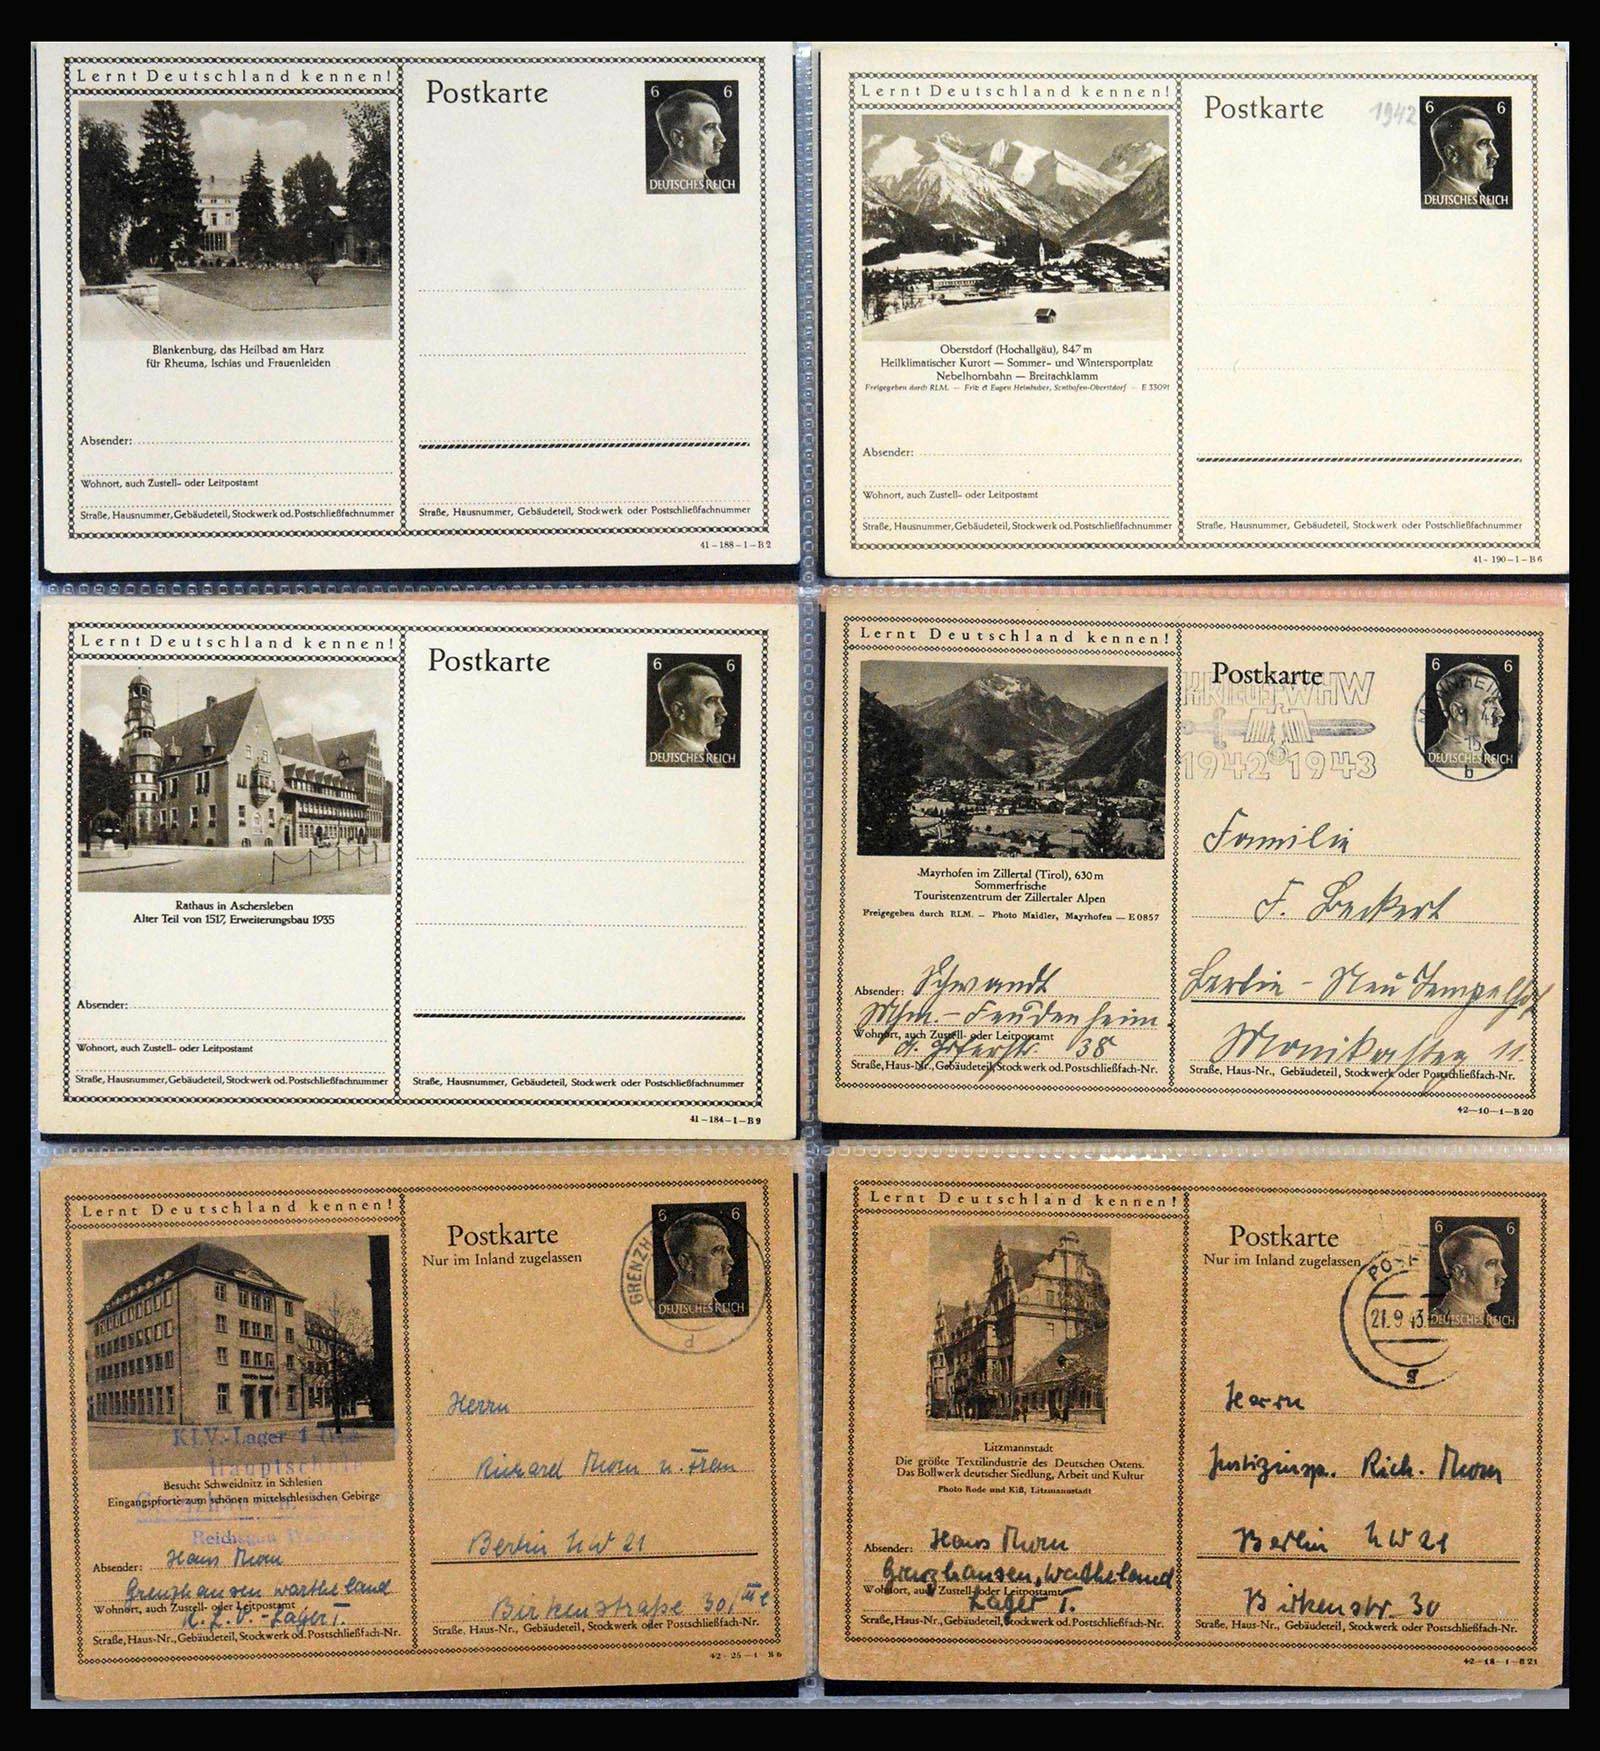 Lernt Deutschland kennen!
Postkarte
6 6
DEUTSCHES REICH
Blankenburg, das Heilbad am Harz
für Rheuma, Ischias und Frauenleiden
Absender:
Wohnort, auch Zustell- oder Leitpostamt
Straße, Hausnummer, Gebäudeteil, Stockwerk od. Postschließfachnummer
Straße, Hausnummer, Gebäudeteil, Stockwerk oder Postschließfachnummer
41-188-1-B 2
Lernt Deutschland kennen!
Postkarte
1942
6 6
DEUTSCHES REICH
Oberstdorf (Hochallgäu), 847 m
Heilklimatischer Kurort — Sommer- und Wintersportplatz
Nebelhornbahn — Breitachklamm
Freigegeben durch RLM. — Fritz & Eugen Heimhuber, Sonthofen-Oberstdorf — E 33091
Absender:
Wohnort, auch Zustell- oder Leitpostamt
Straße, Hausnummer, Gebäudeteil, Stockwerk od. Postschließfachnummer
Straße, Hausnummer, Gebäudeteil, Stockwerk oder Postschließfachnummer
41-190-1-B 6
Lernt Deutschland kennen!
Postkarte
6 6
DEUTSCHES REICH
Rathaus in Aschersleben
Alter Teil von 1517, Erweiterungsbau 1935
Absender:
Wohnort, auch Zustell- oder Leitpostamt
Straße, Hausnummer, Gebäudeteil, Stockwerk od. Postschließfachnummer
Straße, Hausnummer, Gebäudeteil, Stockwerk oder Postschließfachnummer
41-184-1-B 9
Lernt Deutschland kennen!
Postkarte
6 6
DEUTSCHES REICH
WHW
1942 1943
15
b
Mayrhofen im Zillertal (Tirol), 630 m
Sommerfrische
Touristenzentrum der Zillertaler Alpen
Freigegeben durch RLM. — Photo Maidler, Mayrhofen — E 0857
Familie
F. Beckert
Berlin - Neu Tempelhof
Absender: Schwandt
Mhm. - Feudenheim
Wohnort, auch Zustell- oder Leitpostamt
38
11
Straße, Haus-Nr., Gebäudeteil, Stockwerk od. Postschließfach-Nr.
Straße, Haus-Nr., Gebäudeteil, Stockwerk oder Postschließfach-Nr.
42-10-1-B 20
Lernt Deutschland kennen!
Postkarte
Nur im Inland zugelassen
6 6
DEUTSCHES REICH
GRENZH
d
KLV.-Lager 1
Hauptschule
Besucht Schweidnitz in Schlesien
Eingangspforte zum schönen mittelschlesischen Gebirge
Reichsgau
Herrn
Richard Morn u. Frau
Berlin NW 21
Birkenstraße 30/
Absender: Hans Morn
Grenzhausen Wartheland
Wohnort, auch Zustell- oder Leitpostamt
K.L.V.-Lager I.
Straße, Haus-Nr., Gebäudeteil, Stockwerk od. Postschließfach-Nr.
Straße, Haus-Nr., Gebäudeteil, Stockwerk oder Postschließfach-Nr.
42-25-1-B 6
Lernt Deutschland kennen!
Postkarte
Nur im Inland zugelassen
6 6
DEUTSCHES REICH
21.9.43
g
Litzmannstadt
Die größte Textilindustrie des Deutschen Ostens.
Das Bollwerk deutscher Siedlung, Arbeit und Kultur
Photo Rode und Kiß, Litzmannstadt
Herrn
Justizinsp. Rich. Morn
Berlin NW 21
Birkenstr. 30
Absender: Hans Morn
Grenzhausen, Wartheland
Wohnort, auch Zustell- oder Leitpostamt
Lager I.
Straße, Haus-Nr., Gebäudeteil, Stockwerk od. Postschließfach-Nr.
Straße, Haus-Nr., Gebäudeteil, Stockwerk oder Postschließfach-Nr.
42-18-1-B 21